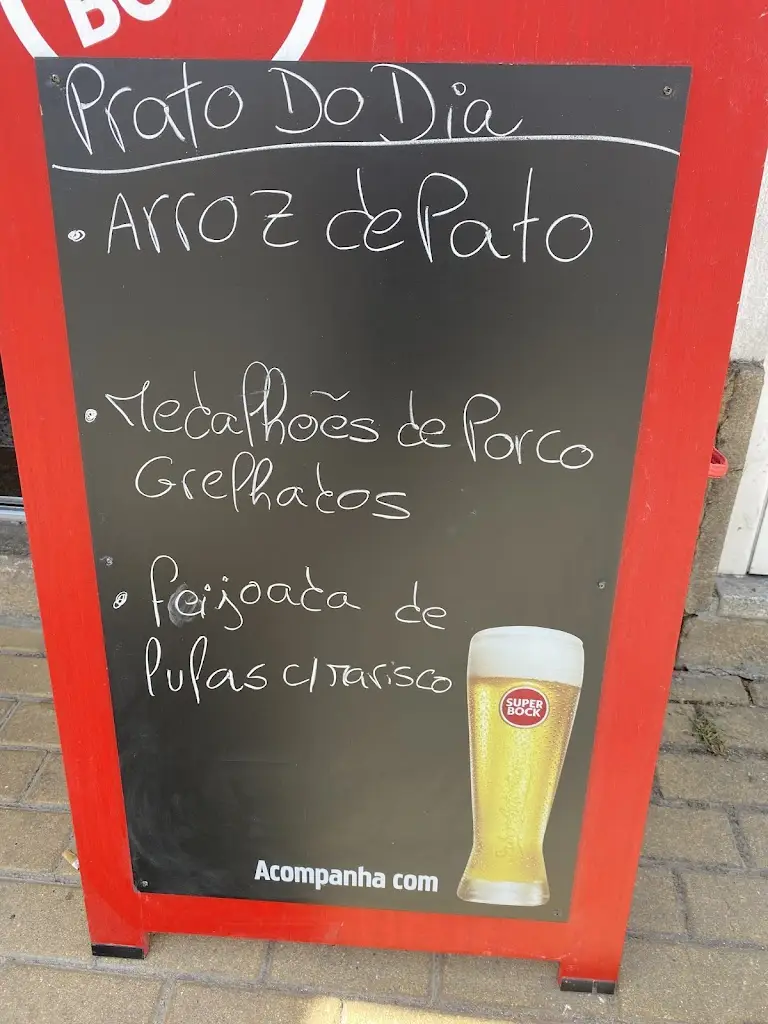 BO
Prato Do Dia
• Arroz de Pato
• Medalhões de Porco
Grelhados
• feijoada de
lulas c/ marisco
SUPER
BOCK
Acompanha com